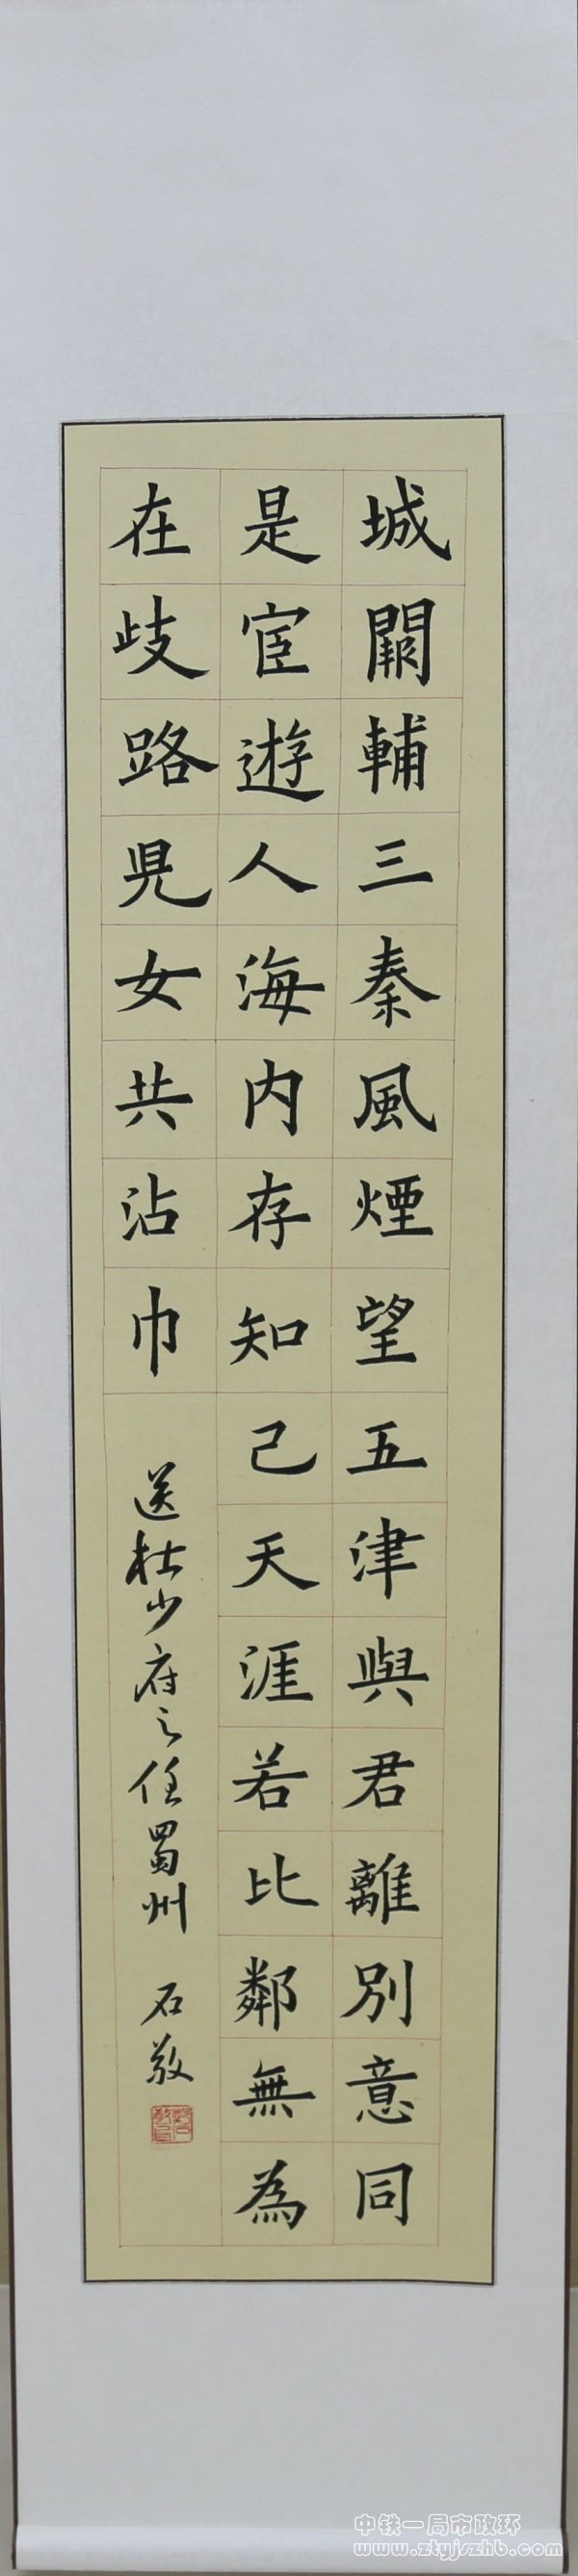 城闕輔三秦風煙望五津與君離別意同
是宦遊人海内存知己天涯若比鄰無為
在歧路兒女共沾巾
送杜少府之任蜀州 石敬
中铁一局市政环
www.ztyjszhb.com